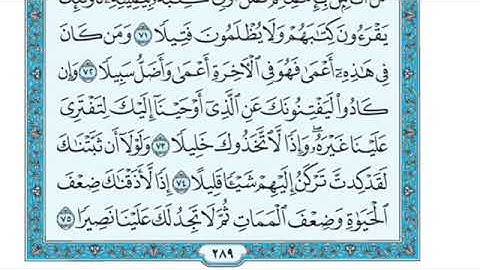 يَقْرَءُونَ كِتَٰبَهُمْ وَلَا يُظْلَمُونَ فَتِيلًا ٧١ وَمَن كَانَ
فِي هَٰذِهِۦٓ أَعْمَىٰ فَهُوَ فِي ٱلْءَاخِرَةِ أَعْمَىٰ وَأَضَلُّ سَبِيلًا ٧٢ وَإِن
كَادُوا۟ لَيَفْتِنُونَكَ عَنِ ٱلَّذِيٓ أَوْحَيْنَآ إِلَيْكَ لِتَفْتَرِيَ
عَلَيْنَا غَيْرَهُۥ ۖ وَإِذًا لَّٱتَّخَذُوكَ خَلِيلًا ٧٣ وَلَوْلَآ أَن ثَبَّتْنَٰكَ
لَقَدْ كِدتَّ تَرْكَنُ إِلَيْهِمْ شَيْـًٔا قَلِيلًا ٧٤ إِذًا لَّأَذَقْنَٰكَ ضِعْفَ
ٱلْحَيَوٰةِ وَضِعْفَ ٱلْمَمَاتِ ثُمَّ لَا تَجِدُ لَكَ عَلَيْنَا نَصِيرًا ٧٥
٢٨٩